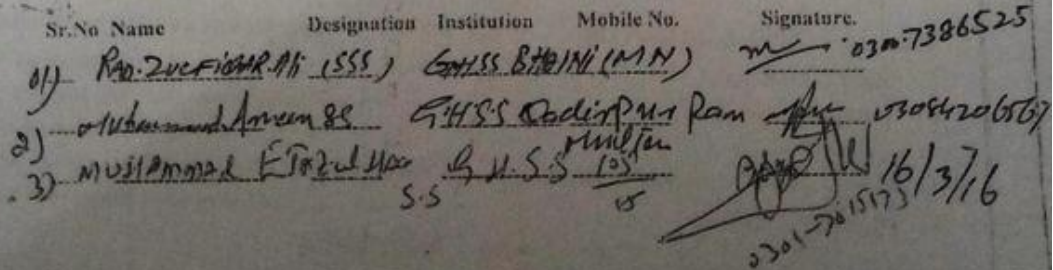 Sr.No Name Designation Institution Mobile No. Signature.
01) Rao. Zulfiqar Ali (SSS) GHSS BHAINI (MN) 0300-7386525
2) Muhammad Ameen SS GHSS Qadirpur Ran Multan
3) Muhammad S.S G.H.S.S 105/15 16/3/16
0301-7015173